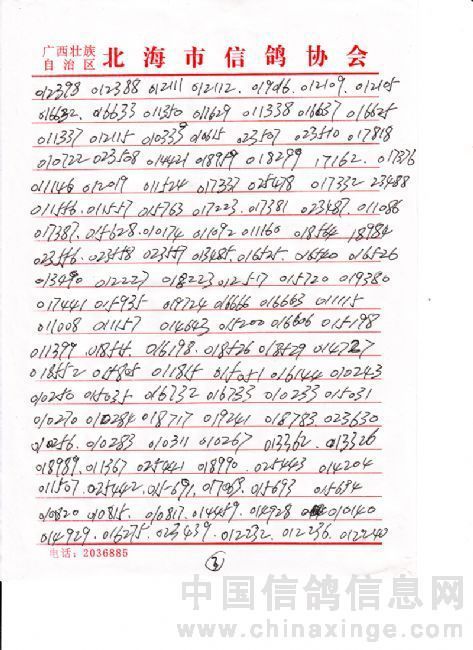 广西壮族
自治区 北海市信鸽协会
012398 012388 012111 012112. 01906. 012109. 012105
016632. 016633 011350 011629 011338 016637 016625
011337 012115 010339 010615 023507 023510 017818
010722 023508 014421 018959 018299 17162. 017376
011146 012019 011524 017337 025478 017332 23488
011556. 011557 015763 017223. 017381 023487. 011086
017387. 015628. 010174 011092 011160 018564 18984
023556. 023558 023559 013485. 016525. 016540 016526
013490 012227 018223 012517 015720 019380
017441 015935 019724 016666 016663 011115
011008 011157 014643 015200 016606 015198
011399 018545. 016198. 018526 018529 014727
018552 015805 011815 015051 016144 010243
010250 015035 016732 016733 010233 015031
010270 010284 018717 019241 018783. 023630
010256. 010283 010311 010267 013362. 013326
018989. 011367 025441 018990 025443 014204
011507. 025442. 015691. 017069. 015693 015694
010820 010815. 010817. 014459. 014928 010140
014929. 016275. 023439. 012232. 012236. 012240
电话：2036885
③
中国信鸽信息网
www.chinaxinge.com